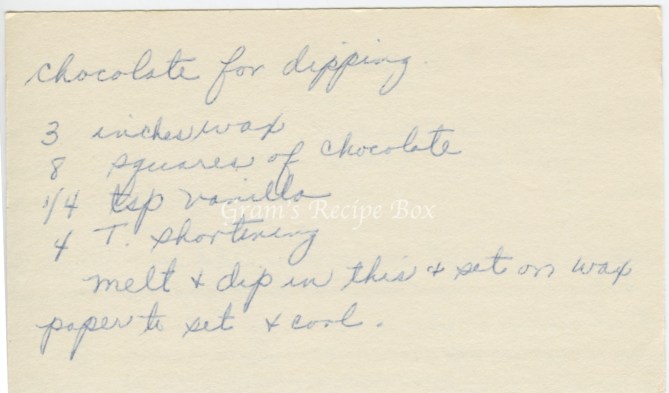 chocolate for dipping.
3 inches wax
8 squares of chocolate
1/4 tsp vanilla
Gram's Recipe Box
4 T. shortening
melt & dip in this & set on wax
paper to set & cool.